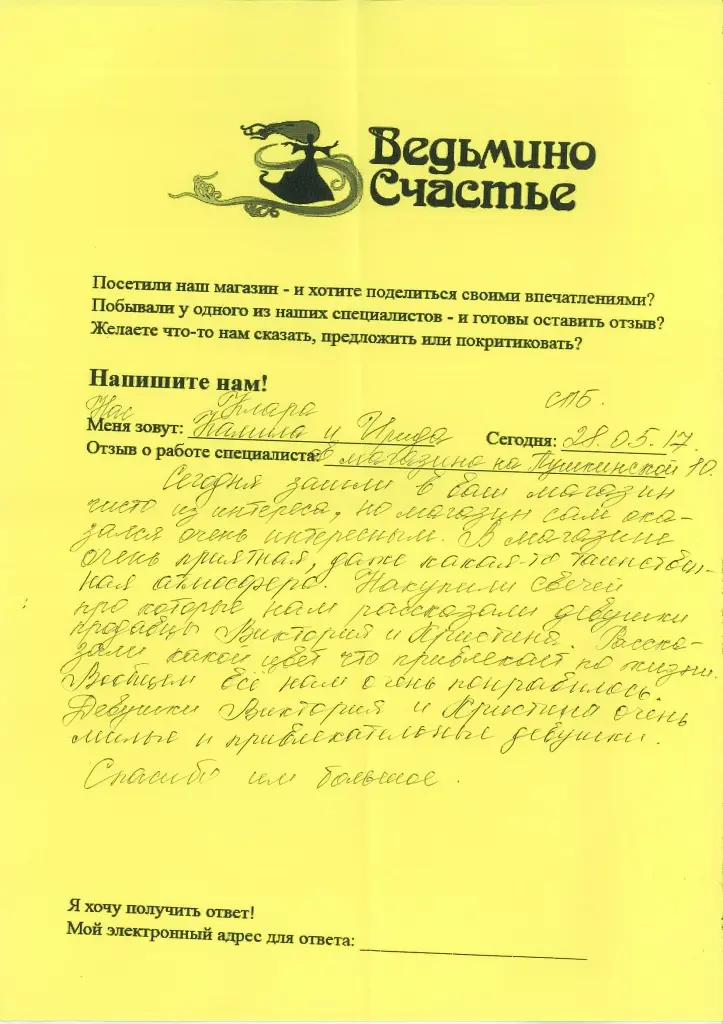 Ведьмино
Счастье
Посетили наш магазин - и хотите поделиться своими впечатлениями?
Побывали у одного из наших специалистов - и готовы оставить отзыв?
Желаете что-то нам сказать, предложить или покритиковать?
Напишите нам!
Нас Клара СПб.
Меня зовут: и Ирида Сегодня: 28.05.17.
Отзыв о работе специалиста: о магазине на Пушкинской 10.
Сегодня зашли в ваш магазин
чисто из интереса, но магазин сам ока-
зался очень интересным. В магазине
очень приятная, даже какая-то таинствен-
ная атмосфера. Накупили свечей
про которые нам рассказали девушки
продавцы Виктория и Кристина. Расска-
зали какой цвет что привлекает по жизни.
Вообщем всё нам очень понравилось.
Девушки Виктория и Кристина очень
милые и привлекательные девушки.
Спасибо им большое.
Я хочу получить ответ!
Мой электронный адрес для ответа: